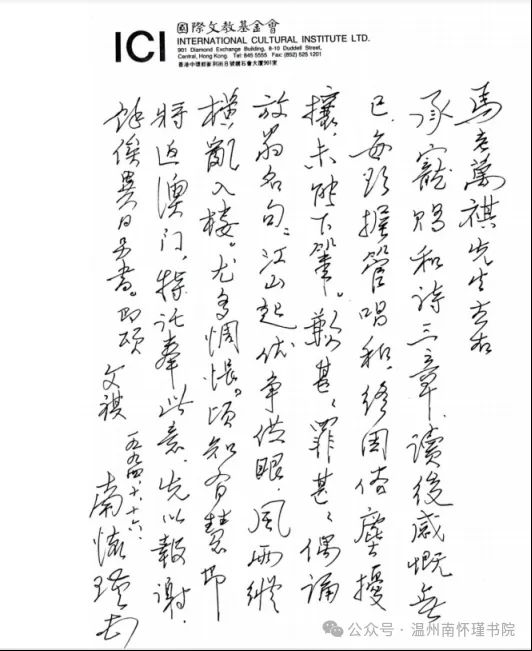 ICI
國際文教基金會
INTERNATIONAL CULTURAL INSTITUTE LTD.
901 Diamond Exchange Building, 8-10 Duddell Street,
Central, Hong Kong. Tel: 845 5555 Fax: (852) 525 1201
馬老萬祺先生左右
承寵賜和詩三章，讀後感慨無
已。每欲握管唱和，終因俗塵擾
攘，未能下筆。歉甚〻罪甚〻偶誦
放翁名句：江山起伏爭供眼，風雨縱
橫亂入樓。尤多惆悵。頃知有慧即
將返澳门，特託奉此意，先以報謝。
餘俟異日另書。即頌 文祺
一九九四、十、十六、
南懷瑾
公众号 · 温州南怀瑾书院